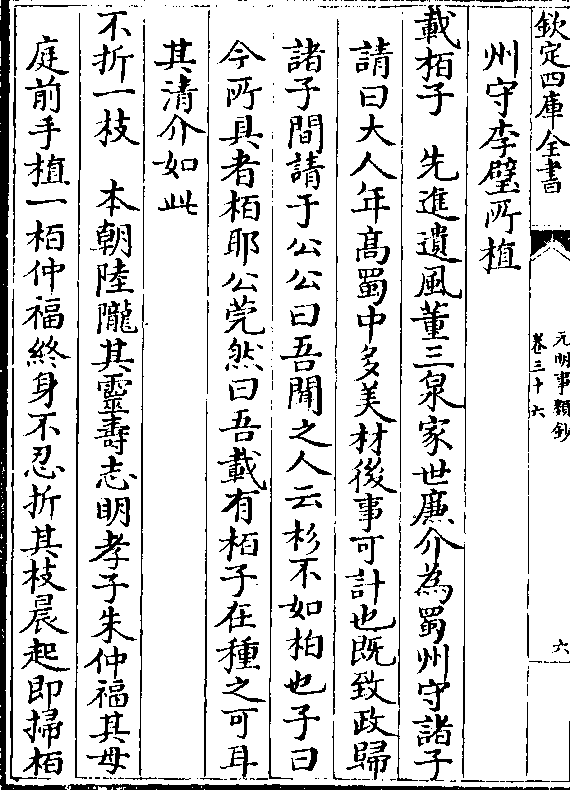 欽定四庫全書
元明事類鈔
卷三十六
六
州守李璧所植
載栢子　先進遺風董三泉家世廉介為蜀州守諸子
請曰大人年髙蜀中多美材後事可計也既致政歸
諸子間請于公公曰吾聞之人云杉不如柏也子曰
今所具者栢耶公莞然曰吾載有栢子在種之可耳
其清介如此
不折一枝　本朝陸隴其靈壽志明孝子朱仲福其母
庭前手植一栢仲福終身不忍折其枝晨起即掃栢